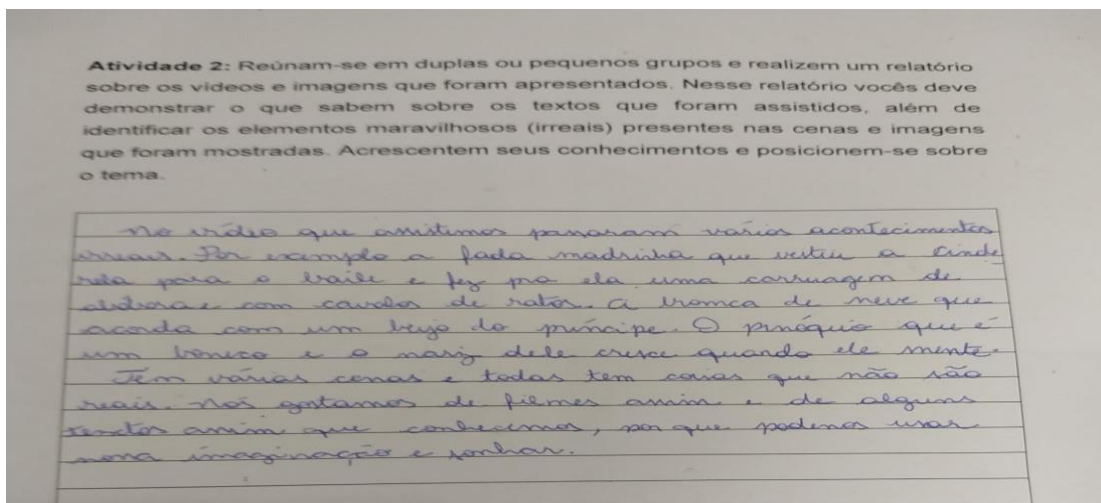 Atividade 2: Reúnam-se em duplas ou pequenos grupos e realizem um relatório
sobre os vídeos e imagens que foram apresentados. Nesse relatório vocês deve
demonstrar o que sabem sobre os textos que foram assistidos, além de
identificar os elementos maravilhosos (irreais) presentes nas cenas e imagens
que foram mostradas. Acrescentem seus conhecimentos e posicionem-se sobre
o tema.
No vídeo que assistimos passaram vários acontecimentos
irreais. Por exemplo a fada madrinha que vestiu a Cinde
rela para o baile e fez pra ela uma carruagem de
e com cavalos de ratos. A branca de neve que
acorda com um beijo do príncipe. O pinóquio que é
um boneco e o nariz dele cresce quando ele mente.
Tem várias cenas e todas tem coisas que não são
reais. Nós gostamos de filmes assim e de alguns
textos assim que conhecemos, por que podemos usar
nossa imaginação e sonhar.